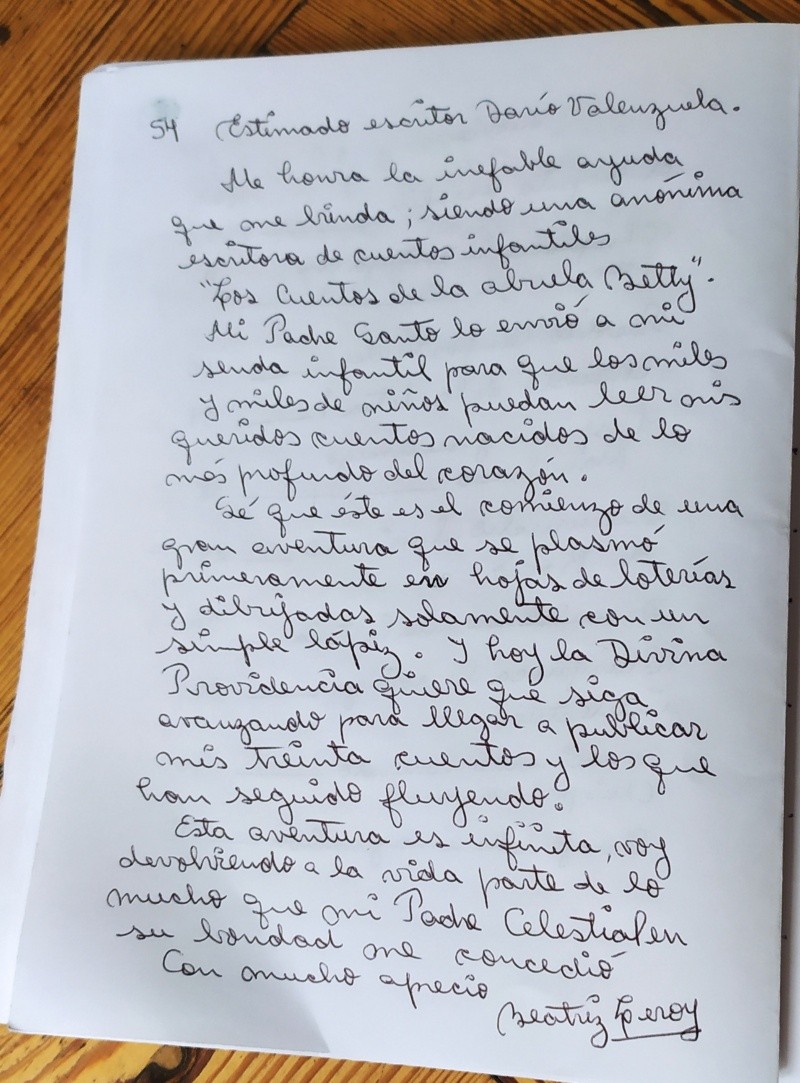 54 Estimado escritor Darío Valenzuela.
Me honra la inefable ayuda
que me brinda; siendo una anónima
escritora de cuentos infantiles
"Los Cuentos de la abuela Betty".
Mi Padre Santo lo envió a mi
senda infantil para que los miles
y miles de niños puedan leer mis
queridos cuentos nacidos de lo
más profundo del corazón.
Sé que éste es el comienzo de una
gran aventura que se plasmó
primeramente en hojas de loterías
y dibujadas solamente con un
simple lápiz. Y hoy la Divina
Providencia quiere que siga
avanzando para llegar a publicar
mis treinta cuentos y los que
han seguido fluyendo.
Esta aventura es infinita, voy
devolviendo a la vida parte de lo
mucho que mi Padre Celestial en
su bondad me concedió
Con mucho aprecio
Beatriz Leroy